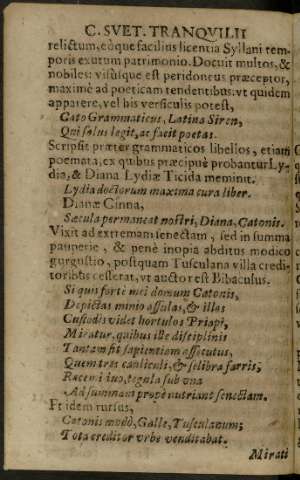 C. SVET. TRANQVILII
relictum, eòque facilius licentia Syllani tem-
poris exutum patrimonio. Docuit multos, &
nobiles: visusque est peridoneus præceptor,
maximè ad poeticam tendentibus: vt quidem
apparere, vel his versiculis potest,
Cato Grammaticus, Latina Siren,
Qui solus legit, ac facit poetas.
Scripsit præter grammaticos libellos, etiam
poemata, ex quibus præcipuè probantur Ly-
dia, & Diana Lydiæ Ticida meminit.
Lydia doctorum maxima cura liber.
Dianæ Cinna,
Sæcula permaneat nostri, Diana, Catonis.
Vixit ad extremam senectam, sed in summa
pauperie, & penè inopia abditus modico
gurgustio, postquam Tusculana villa credi-
toribus cesserat, vt auctor est Bibaculus.
Si quis fortè mei domum Catonis,
Depictas minio assulas, & illas
Custodis videt hortulos Priapi,
Miratur, quibus ille disciplinis
Tantam sit sapientiam assecutus,
Quem tres cauliculi, & selibra farris;
Racemi duo, tegula sub vna
Ad summam propè nutriant senectam.
Et idem rursus,
Catonis modò, Galle, Tusculanum;
Tota creditor vrbe venditabat.
Mirati